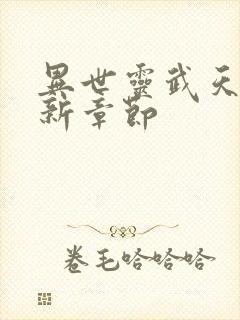 異世靈武天
新章節
卷毛哈哈哈